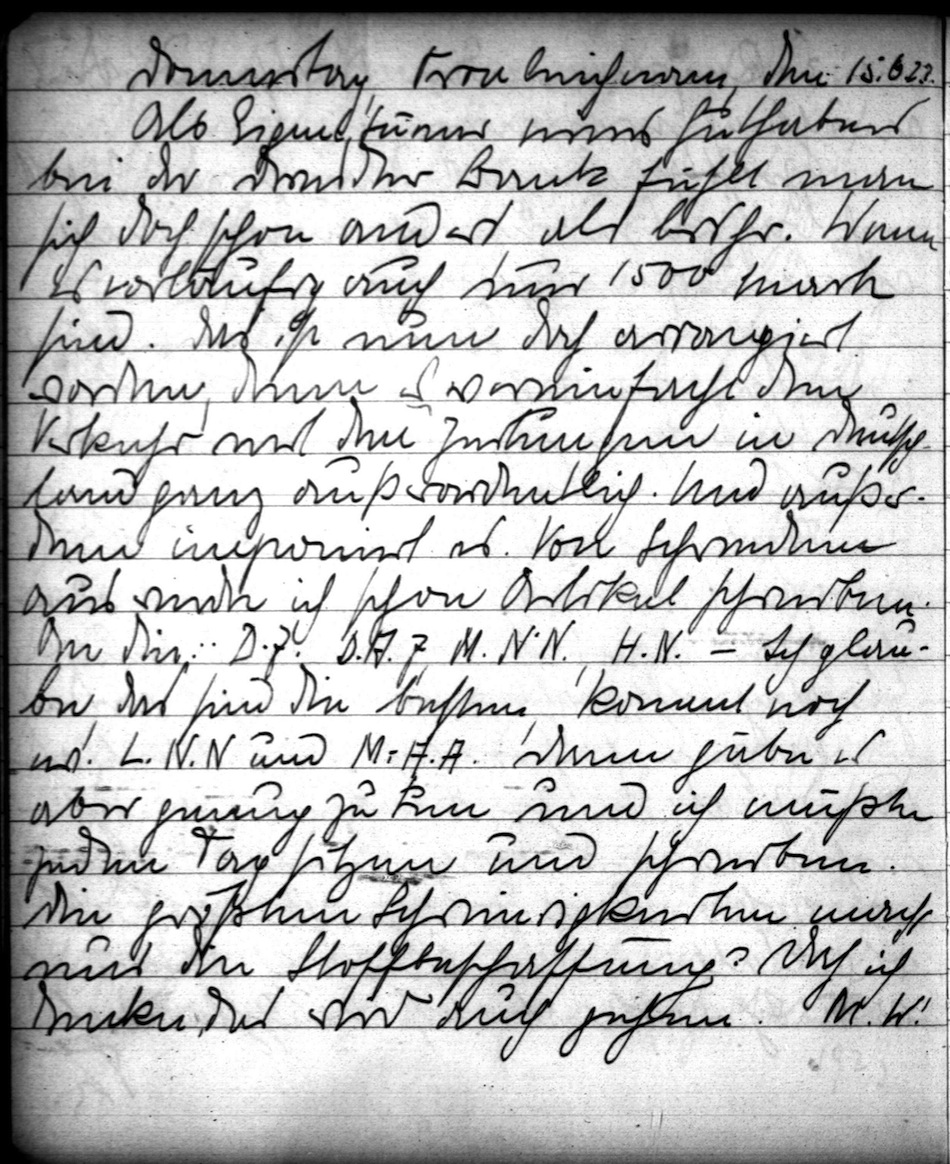 Donnerstag, Fronleichnam, den 15.6.22.
Als Eigentümer eines Guthabens
bei der Dresdner Bank fühlt man
sich doch schon anders als bisher. Wenn
es vorläufig auch nur 1500 Mark
sind. Das ist nun doch arrangiert
worden, denn es vereinfacht den
Verkehr mit den Zeitungen in Deutsch-
land ganz außerordentlich. Und außer-
dem imponiert es. Von Schweden
aus werde ich schon Artikel schreiben.
An die: D.Z. D.A.Z, M.N.N., H.N. – Ich glau-
be, das sind die besten, kommt noch
L.N.N und M.A.A. dann gäbe es
aber genug zu tun und ich müßte
jeden Tag sitzen und schreiben.
Die größten Schwierigkeiten macht
nur die Stoffbeschaffung? Doch ich
denke, das wird auch gehen. M.W.